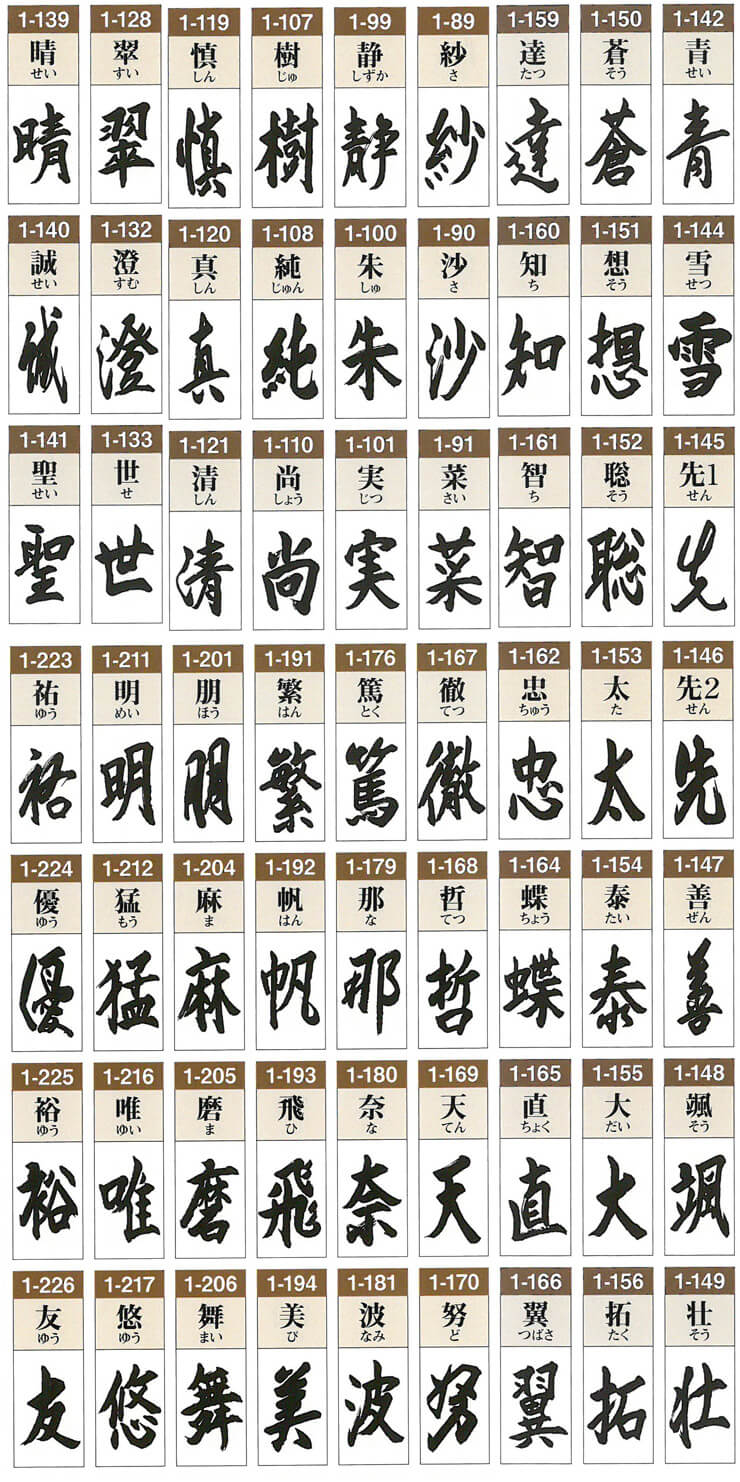 1-139 1-128 1-119 1-107 1-99 1-89 1-159 1-150 1-142
晴 翠 慎 樹 静 紗 達 蒼 青
せい すい しん じゅ しずか さ たつ そう せい
晴 翠 慎 樹 静 紗 達 蒼 青
1-140 1-132 1-120 1-108 1-100 1-90 1-160 1-151 1-144
誠 澄 真 純 朱 沙 知 想 雪
せい すむ しん じゅん しゅ さ ち そう せつ
誠 澄 真 純 朱 沙 知 想 雪
1-141 1-133 1-121 1-110 1-101 1-91 1-161 1-152 1-145
聖 世 清 尚 実 菜 智 聡 先1
せい せ しん しょう じつ さい ち そう せん
聖 世 清 尚 実 菜 智 聡 先
1-223 1-211 1-201 1-191 1-176 1-167 1-162 1-153 1-146
祐 明 朋 繁 篤 徹 忠 太 先2
ゆう めい ほう はん とく てつ ちゅう た せん
祐 明 朋 繁 篤 徹 忠 太 先
1-224 1-212 1-204 1-192 1-179 1-168 1-164 1-154 1-147
優 猛 麻 帆 那 哲 蝶 泰 善
ゆう もう ま はん な てつ ちょう たい ぜん
優 猛 麻 帆 那 哲 蝶 泰 善
1-225 1-216 1-205 1-193 1-180 1-169 1-165 1-155 1-148
裕 唯 磨 飛 奈 天 直 大 颯
ゆう ゆい ま ひ な てん ちょく だい そう
裕 唯 磨 飛 奈 天 直 大 颯
1-226 1-217 1-206 1-194 1-181 1-170 1-166 1-156 1-149
友 悠 舞 美 波 努 翼 拓 壮
ゆう ゆう まい び なみ ど つばさ たく そう
友 悠 舞 美 波 努 翼 拓 壮